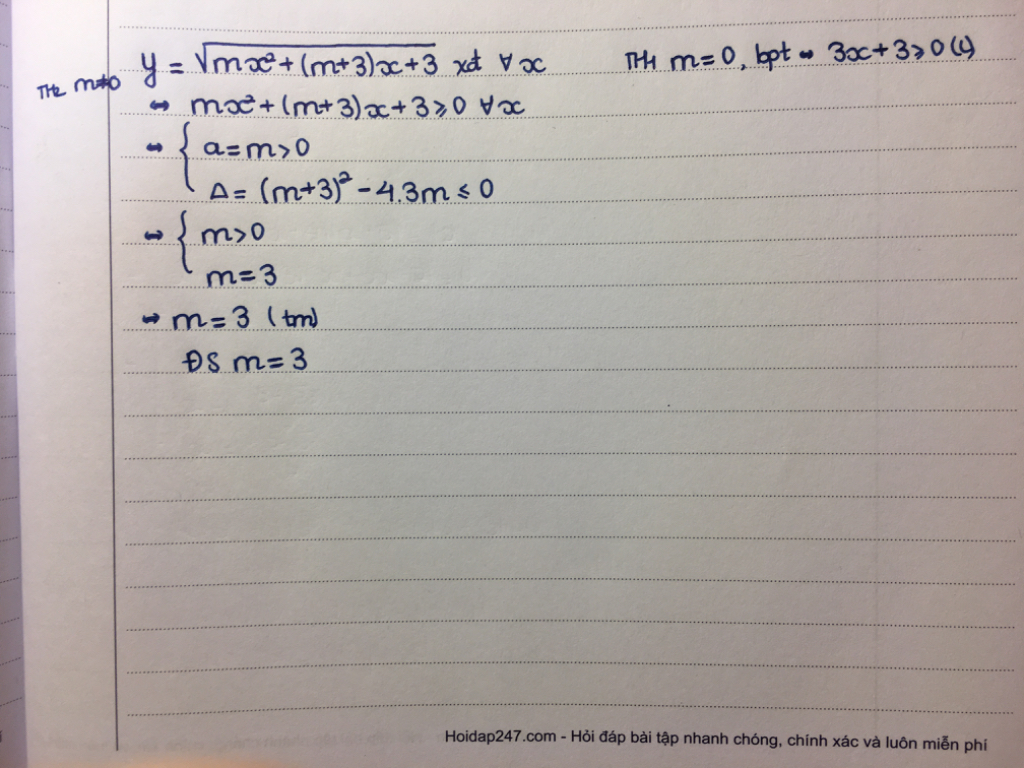 y = √(mx² + (m+3)x + 3) xđ ∀x
TH1 m = 0, bpt ⇔ 3x + 3 ≥ 0 (L)
TH2 m≠0
⇔ mx² + (m+3)x + 3 ≥ 0 ∀x
⇔ { a = m > 0
Δ = (m+3)² - 4.3m ≤ 0
⇔ { m > 0
m = 3
⇔ m = 3 (tm)
ĐS m = 3
Hoidap247.com - Hỏi đáp bài tập nhanh chóng, chính xác và luôn miễn phí